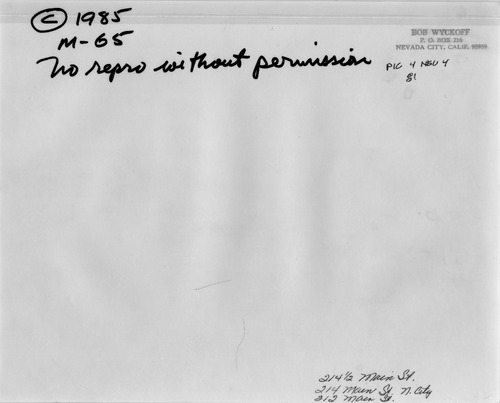 © 1985
M-65
No repro without permission
BOB WYCKOFF
P. O. BOX 216
NEVADA CITY, CALIF. 95959
PIC 4 NEG 4
81
214½ Main St.
214 Main St. N. City
212 Main St.